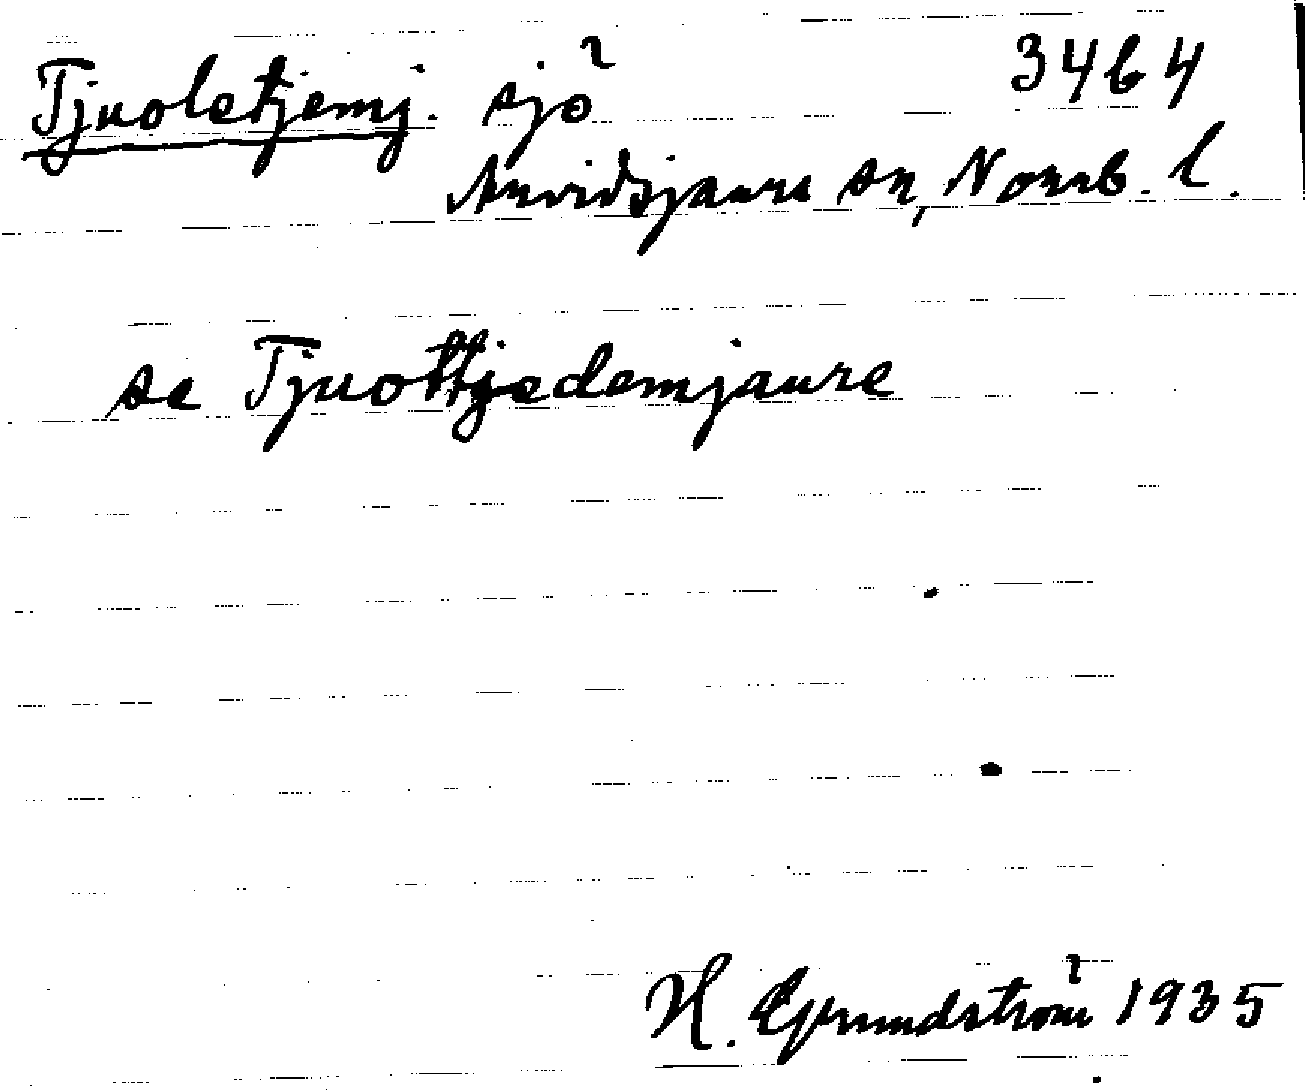 Tjuoletjemj. sjö 3464
Arvidsjaurs sn, Norrb. l.
se Tjuottjedemjaure
H. Grundström 1935